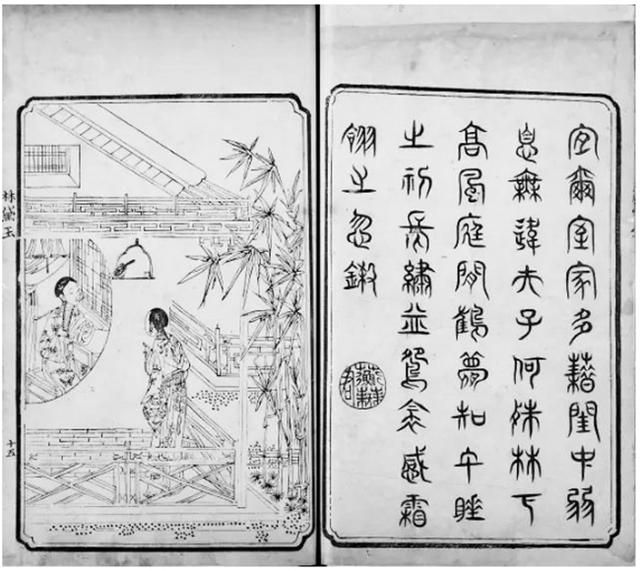 宜爾室家多藉閨中弱
息無違夫子何殊林下
高風庭閒鶴夢知午睡
之初長繡並鴛衾感霜
翎之忽鎩
林黛玉
十五